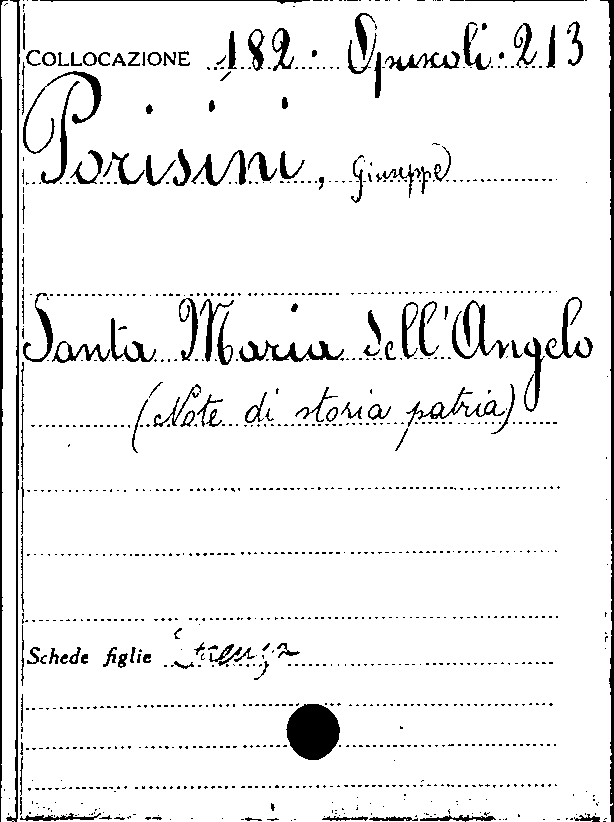 COLLOCAZIONE 182. Opuscoli. 213
Porisini, Giuseppe
Santa Maria dell'Angelo
(Note di storia patria)
Schede figlie Faenza